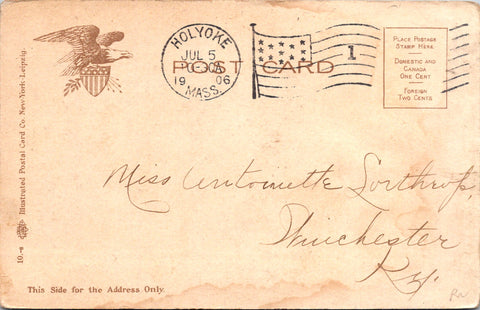 HOLYOKE
JUL 5
19 06
MASS.
1
POST CARD
PLACE POSTAGE
STAMP HERE
DOMESTIC AND
CANADA
ONE CENT
FOREIGN
TWO CENTS
Illustrated Postal Card Co. New-York-Leipzig.
Miss Antoinette Lorthrop,
Winchester
Ky.
This Side for the Address Only.